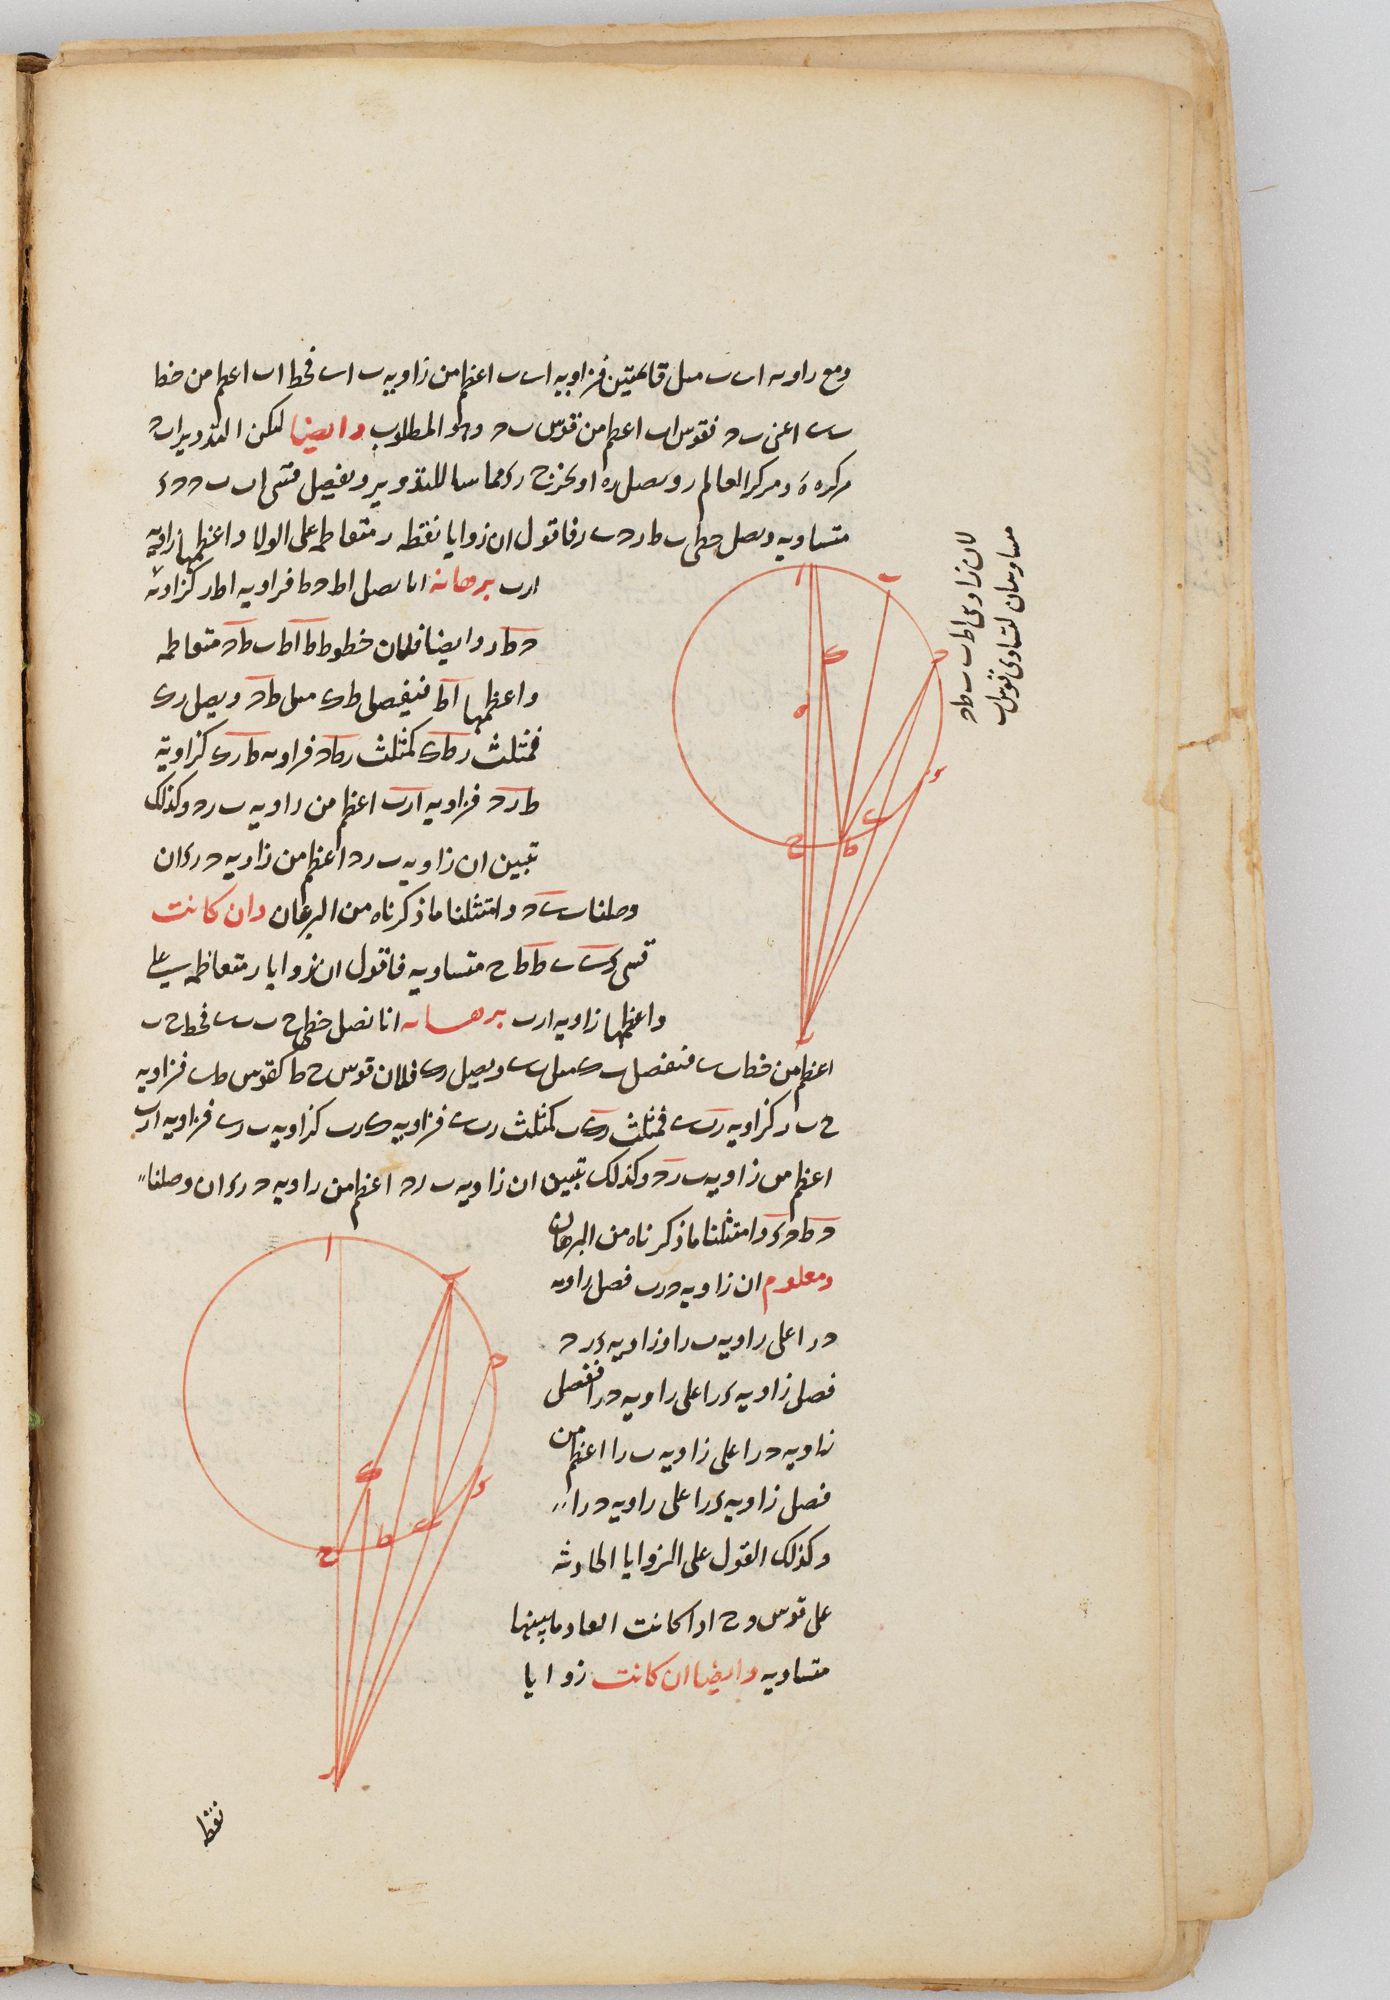 ومع زاويه اب مثل قائمتين فزاويه اب اعظم من زاويه ب اب فخط اب اعظم من خط
اعنى ب د فقوس اب اعظم من قوس ب د وهو المطلوب وايضا ليكن التدوير اب د
مركزه ه ومركز العالم ر ونصل ره ا ونخرج ر ى مماسا للتدوير ونفصل قسى اب ب د د ى
متساويه ونصل خطى ب ط ر د ر فاقول ان زوايا نقطه ر متعاظمه على الولا واعظمها زاويه
ارب برهانه انا نصل اط د ط فزاويه اطر كزاويه
د ط ر وايضا فلان خطوط اط ب ط د ط متعاظمه
واعظمها اط فنفصل ط ك مثل ط د ونصل ر ك
فمثلث ر ط ك كمثلث ر ط د فزاويه ط ر ك كزاوية
ط ر د فزاويه ارب اعظم من زاويه ب ر د وكذلك
تبين ان زاويه ب ر د اعظم من زاويه د ر ى ان
وصلنا د وامتثلنا ما ذكرناه من البرهان وان كانت
قسى ط ط ح متساويه فاقول ان زوايا ر متعاظمه
واعظمها زاويه ارب برهانه انا نصل خطى ح ب ب فخط ح ب
اعظم من خط ب فنفصل ب ك مثل ب ونصل ر ك فلان قوس ح ط كقوس ط فزاويه
ح ب ر كزاويه ر ب فمثلث ر ك ب كمثلث ر ب فزاويه ك ر ب كزاويه ب ر فزاويه ارب
اعظم من زاويه ب ر د وكذلك تبين ان زاويه ب ر د اعظم من زاويه د ر ى ان وصلنا
د ط د وامتثلنا ما ذكرناه من البرهان
ومعلوم ان زاويه د ر ب فصل زاويه
د ر ا على زاويه ب ر ا وزاويه ى ر د
فصل زاويه ى ر ا على زاويه د ر ا ففصل
زاويه د ر ا على زاويه ب ر ا اعظم من
فصل زاويه ى ر ا على زاويه د ر ا
وكذلك القول على الزوايا الحادثه
على قوس ح اذا كانت ابعاد ما بينها
متساويه وايضا ان كانت زوايا
نقطة
لان زاويتى اط ب ب ط د
متساويتان لتساوى قوسى
ا
ب
د
ك
ه
ى
ح
ط
ر
ا
ب
د
ك
ى
ح
ط
ر